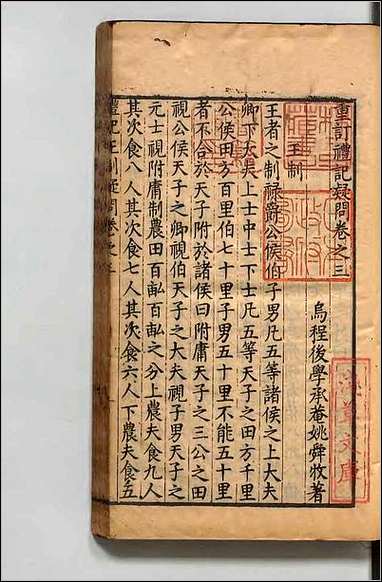 重訂禮記疑問卷之三
烏程後學承菴姚舜牧著
王制
王者之制祿爵公侯伯子男凡五等諸侯之上大夫
卿下大夫上士中士下士凡五等天子之田方千里
公侯田方百里伯七十里子男五十里不能五十里
者不合於天子附於諸侯曰附庸天子之三公之田
視公侯天子之卿視伯天子之大夫視子男天子之
元士視附庸制農田百畝百畝之分上農夫食九人
其次食八人其次食七人其次食六人下農夫食五
禮記王制疑問卷之三